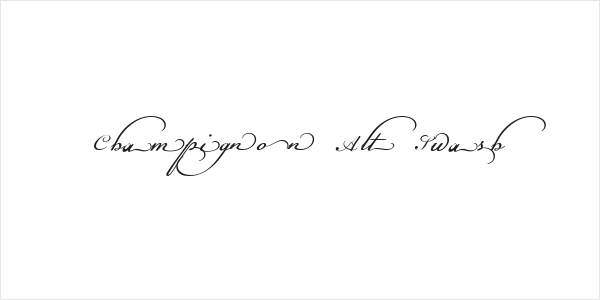 Champignon Alt Swash